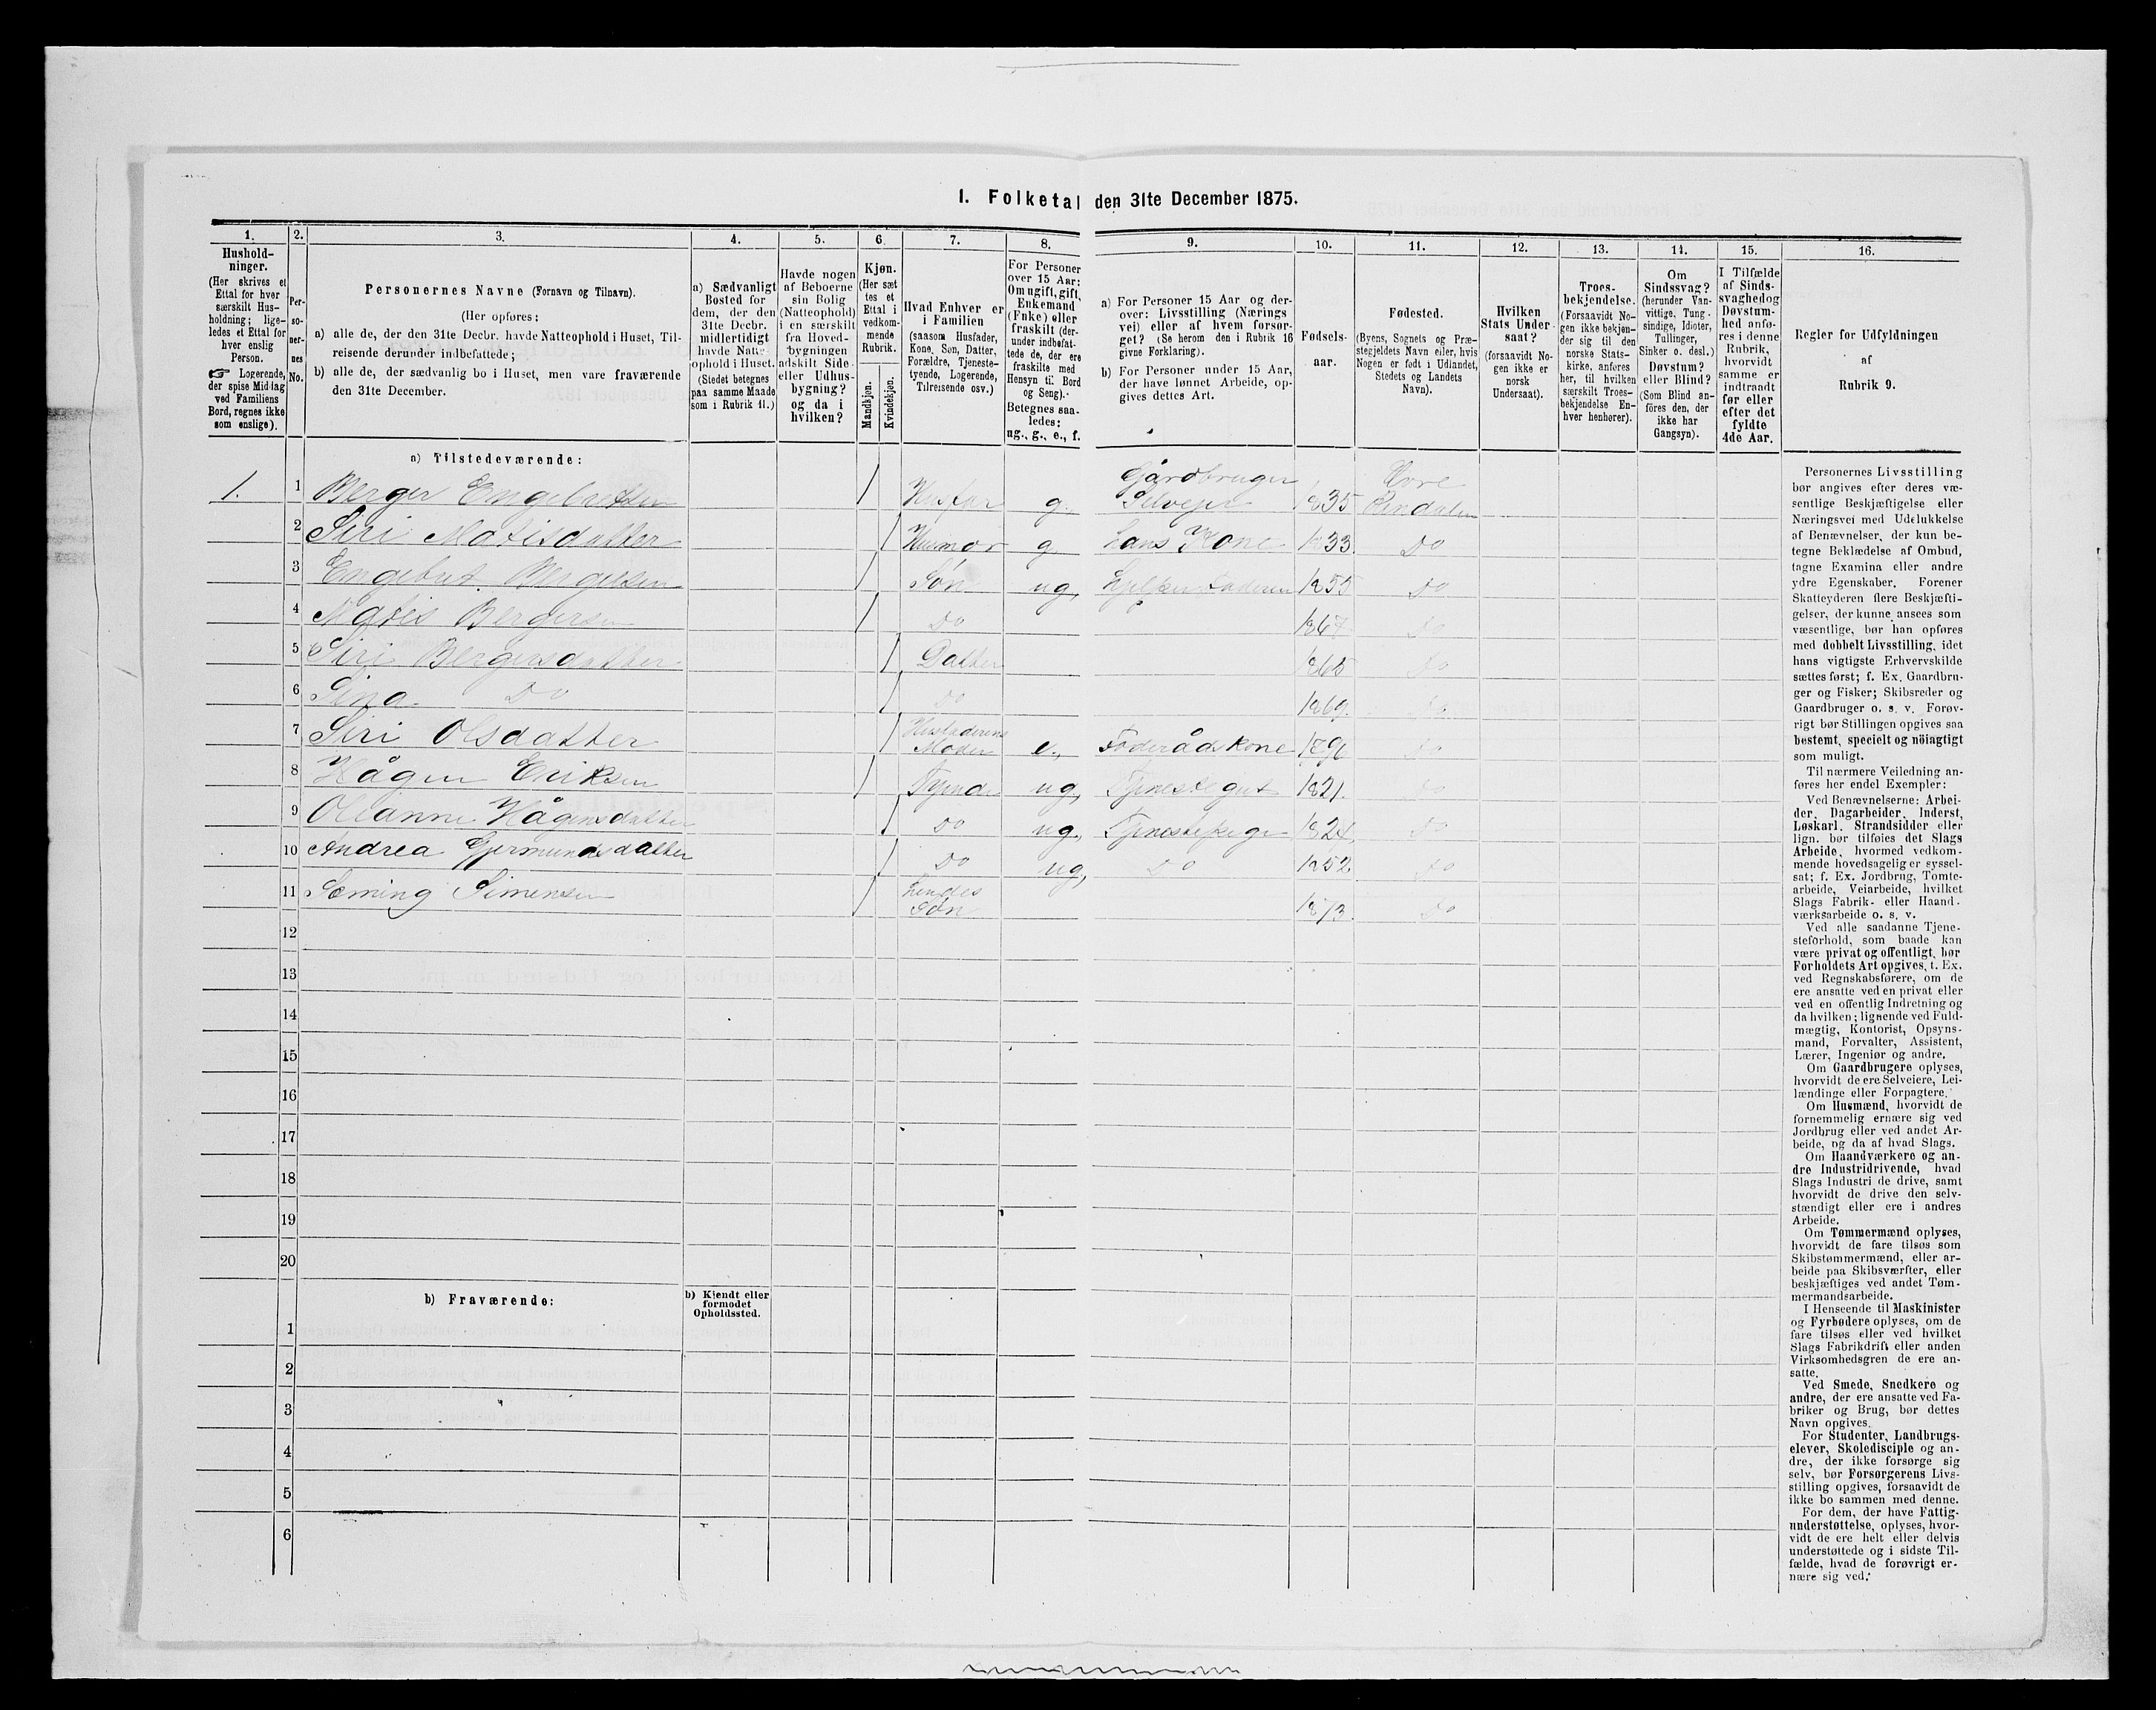 I. Folketal den 31te December 1875.
1. 2. 3. 4. 5. 6. 7. 8. 9. 10. 11. 12. 13. 14. 15. 16.
Hushold-
ninger.
(Her skrives et
Ettal for hver
særskilt Hus-
holdning; lige-
ledes et Ettal for
hver enslig
Person.
☞ Logerende,
der spise Middag
ved Familiens
Bord, regnes ikke
som enslige).
Per-
so-
ner-
nes
No.
Personernes Navne (Fornavn og Tilnavn).
(Her opføres:
a) alle de, der den 31te Decbr. havde Natteophold i Huset, Til-
reisende derunder indbefattede;
b) alle de, der sædvanlig bo i Huset, men vare fraværende
den 31te December.
a) Sædvanligt
Bosted for
dem, der den
31te Decbr.
midlertidigt
havde Natte-
ophold i Huset.
(Stedet betegnes
paa samme Maade
som i Rubrik 11.)
Havde nogen
af Beboerne
sin Bolig
(Natteophold)
i en særskilt
fra Hoved-
bygningen
adskilt Side-
eller Udhus-
bygning?
og da i
hvilken?
Kjøn.
(Her sæt
tes et
Ettal i
vedkom-
mende
Rubrik.
Mandkjøn.
Kvindekjøn.
Hvad Enhver er
i Familien
(saasom Husfader,
Kone, Søn, Datter,
Forældre, Tjeneste-
tyende, Logerende,
Tilreisende osv.)
For Personer
over 15 Aar:
Om ugift, gift,
Enkemand
(Enke) eller
fraskilt (der-
under indbefat-
tede de, der ere
fraskilte med
Hensyn til Bord
og Seng).
Betegnes saa-
ledes:
ug., g., e., f.
a) For Personer 15 Aar og der-
over: Livsstilling (Nærings
vei) eller af hvem forsør-
get? (Se herom den i Rubrik 16
givne Forklaring).
b) For Personer under 15 Aar,
der have lønnet Arbeide, op-
gives dettes Art.
Fødsels-
aar.
Fødested.
(Byens, Sognets og Præ-
stegjeldets Navn eller, hvis
Nogen er født i Udlandet,
Stedets og Landets
Navn).
Hvilken
Stats Under-
saat?
(forsaavidt No-
gen ikke er
norsk
Undersaat).
Troes-
bekjendelse.
(Forsaavidt No-
gen ikke bekjen-
der sig til den
norske Stats-
kirke, anføres
her, til hvilken
særskilt Troes-
bekjendelse En-
hver henhører).
Om
Sindssvag?
(herunder Van-
vittige, Tung-
sindige, Idioter,
Tullinger,
Sinker o. desl.)
Døvstum?
eller Blind?
(Som Blind an-
føres den, der
ikke har
Gangsyn).
I Tilfælde
af Sinds-
svaghed og
Døvstum-
hed anfø-
res i denne
Rubrik,
hvorvidt
samme er
indtraadt
før eller
efter det
fyldte
4de Aar.
Regler for Udfyldningen
af
Rubrik 9.
a) Tilstedeværende:
1. 1 Berger Engebretsen / Husfar g. Gårdbruger Selvejer 1835 Øvre Rendalen
2 Siri Matisdatter / Husmor g. hans Kone 1833. Do
3 Engebret Bergersen / Søn ug, hjelper Faderen 1855 Do
4 Matis Bergersen / Do 1867 Do
5 Siri Bergersdatter / Datter 1865 Do
6 Sina Do / Do 1869. Do
7 Siri Olsdatter / Husfaderens Moder e., Føderådskone 1796 Do
8 Hågen Eriksen / Tyende ug, Tjenestegut 1821. Do
9 Oleanne Hågensdatter / Do ug., Tjenestepige 1824 Do
10 Andrea Gjermundsdatter / Do ug, Do 1852 Do
11 Sæming Simensen / hendes Søn 1873. Do
12
13
14
15
16
17
18
19
20
b) Fraværende:
b) Kjendt eller
formodet
Opholdssted.
1
2
3
4
5
6
Personernes Livsstilling
bør angives efter deres væ-
sentlige Beskjæftigelse eller
Næringsvei med Udelukkelse
af Benævnelser, der kun be-
tegne Beklædelse af Ombud,
tagne Examina eller andre
ydre Egenskaber. Forener
Skatteyderen flere Beskjæfti-
gelser, der kunne ansees som
væsentlige, bør han opføres
med dobbelt Livsstilling, idet
hans vigtigste Erhvervskilde
sættes først; f. Ex. Gaardbru-
ger og Fisker; Skibsreder og
Gaardbruger o. s. v. Forøv-
rigt bør Stillingen opgives saa
bestemt, specielt og nöiagtigt
som muligt.
Til nærmere Veiledning an-
føres her endel Exempler:
Ved Benævnelserne: Arbei-
der, Dagarbeider, Inderst,
Løskarl, Strandsidder eller
lign. bør tilføies det Slags
Arbeide, hvormed vedkom-
mende hovedsagelig er syssel-
sat; f. Ex. Jordbrug, Tomte-
arbeide, Veiarbeide, hvilket
Slags Fabrik- eller Haand-
værksarbeide o. s. v.
Ved alle saadanne Tjene-
steforhold, som baade kan
være privat og offentligt, bør
Forholdets Art opgives, t. Ex.
ved Regnskabsførere, om de
ere ansatte ved en privat eller
ved en offentlig Indretning og
da hvilken; lignende ved Fuld-
mægtig, Kontorist, Opsyns-
mand, Forvalter, Assistent,
Lærer, Ingeniør og andre.
Om Gaardbrugere oplyses,
hvorvidt de ere Selveiere, Lei-
lændinge eller Forpagtere.
Om Husmænd, hvorvidt de
fornemmelig ernære sig ved
Jordbrug eller ved andet Ar-
beide, og da af hvad Slags.
Om Haandværkere og an-
dre Industridrivende, hvad
Slags Industri de drive, samt
hvorvidt de drive den selv-
stændigt eller ere i andres
Arbeide.
Om Tømmermænd oplyses,
hvorvidt de fare tilsøs som
Skibstømmermænd, eller ar-
beide paa Skibsværfter, eller
beskjæftiges ved andet Tøm-
mermandsarbeide.
I Henseende til Maskinister
og Fyrbødere oplyses, om de
fare tilsøs eller ved hvilket
Slags Fabrikdrift eller anden
Virksomhedsgren de ere an-
satte.
Ved Smede, Snedkere og
andre, der ere ansatte ved Fa-
briker og Brug, bør dettes
Navn opgives.
For Studenter, Landbrugs-
elever, Skoledisciple og an-
dre, der ikke forsørge sig
selv, bør Forsørgerens Livs-
stilling opgives, forsaavidt de
ikke bo sammen med denne.
For dem, der have Fattig-
understøttelse, oplyses, hvor-
vidt de ere helt eller delvis
understøttede og i sidste Til-
fælde, hvad de forøvrigt er-
nære sig ved.